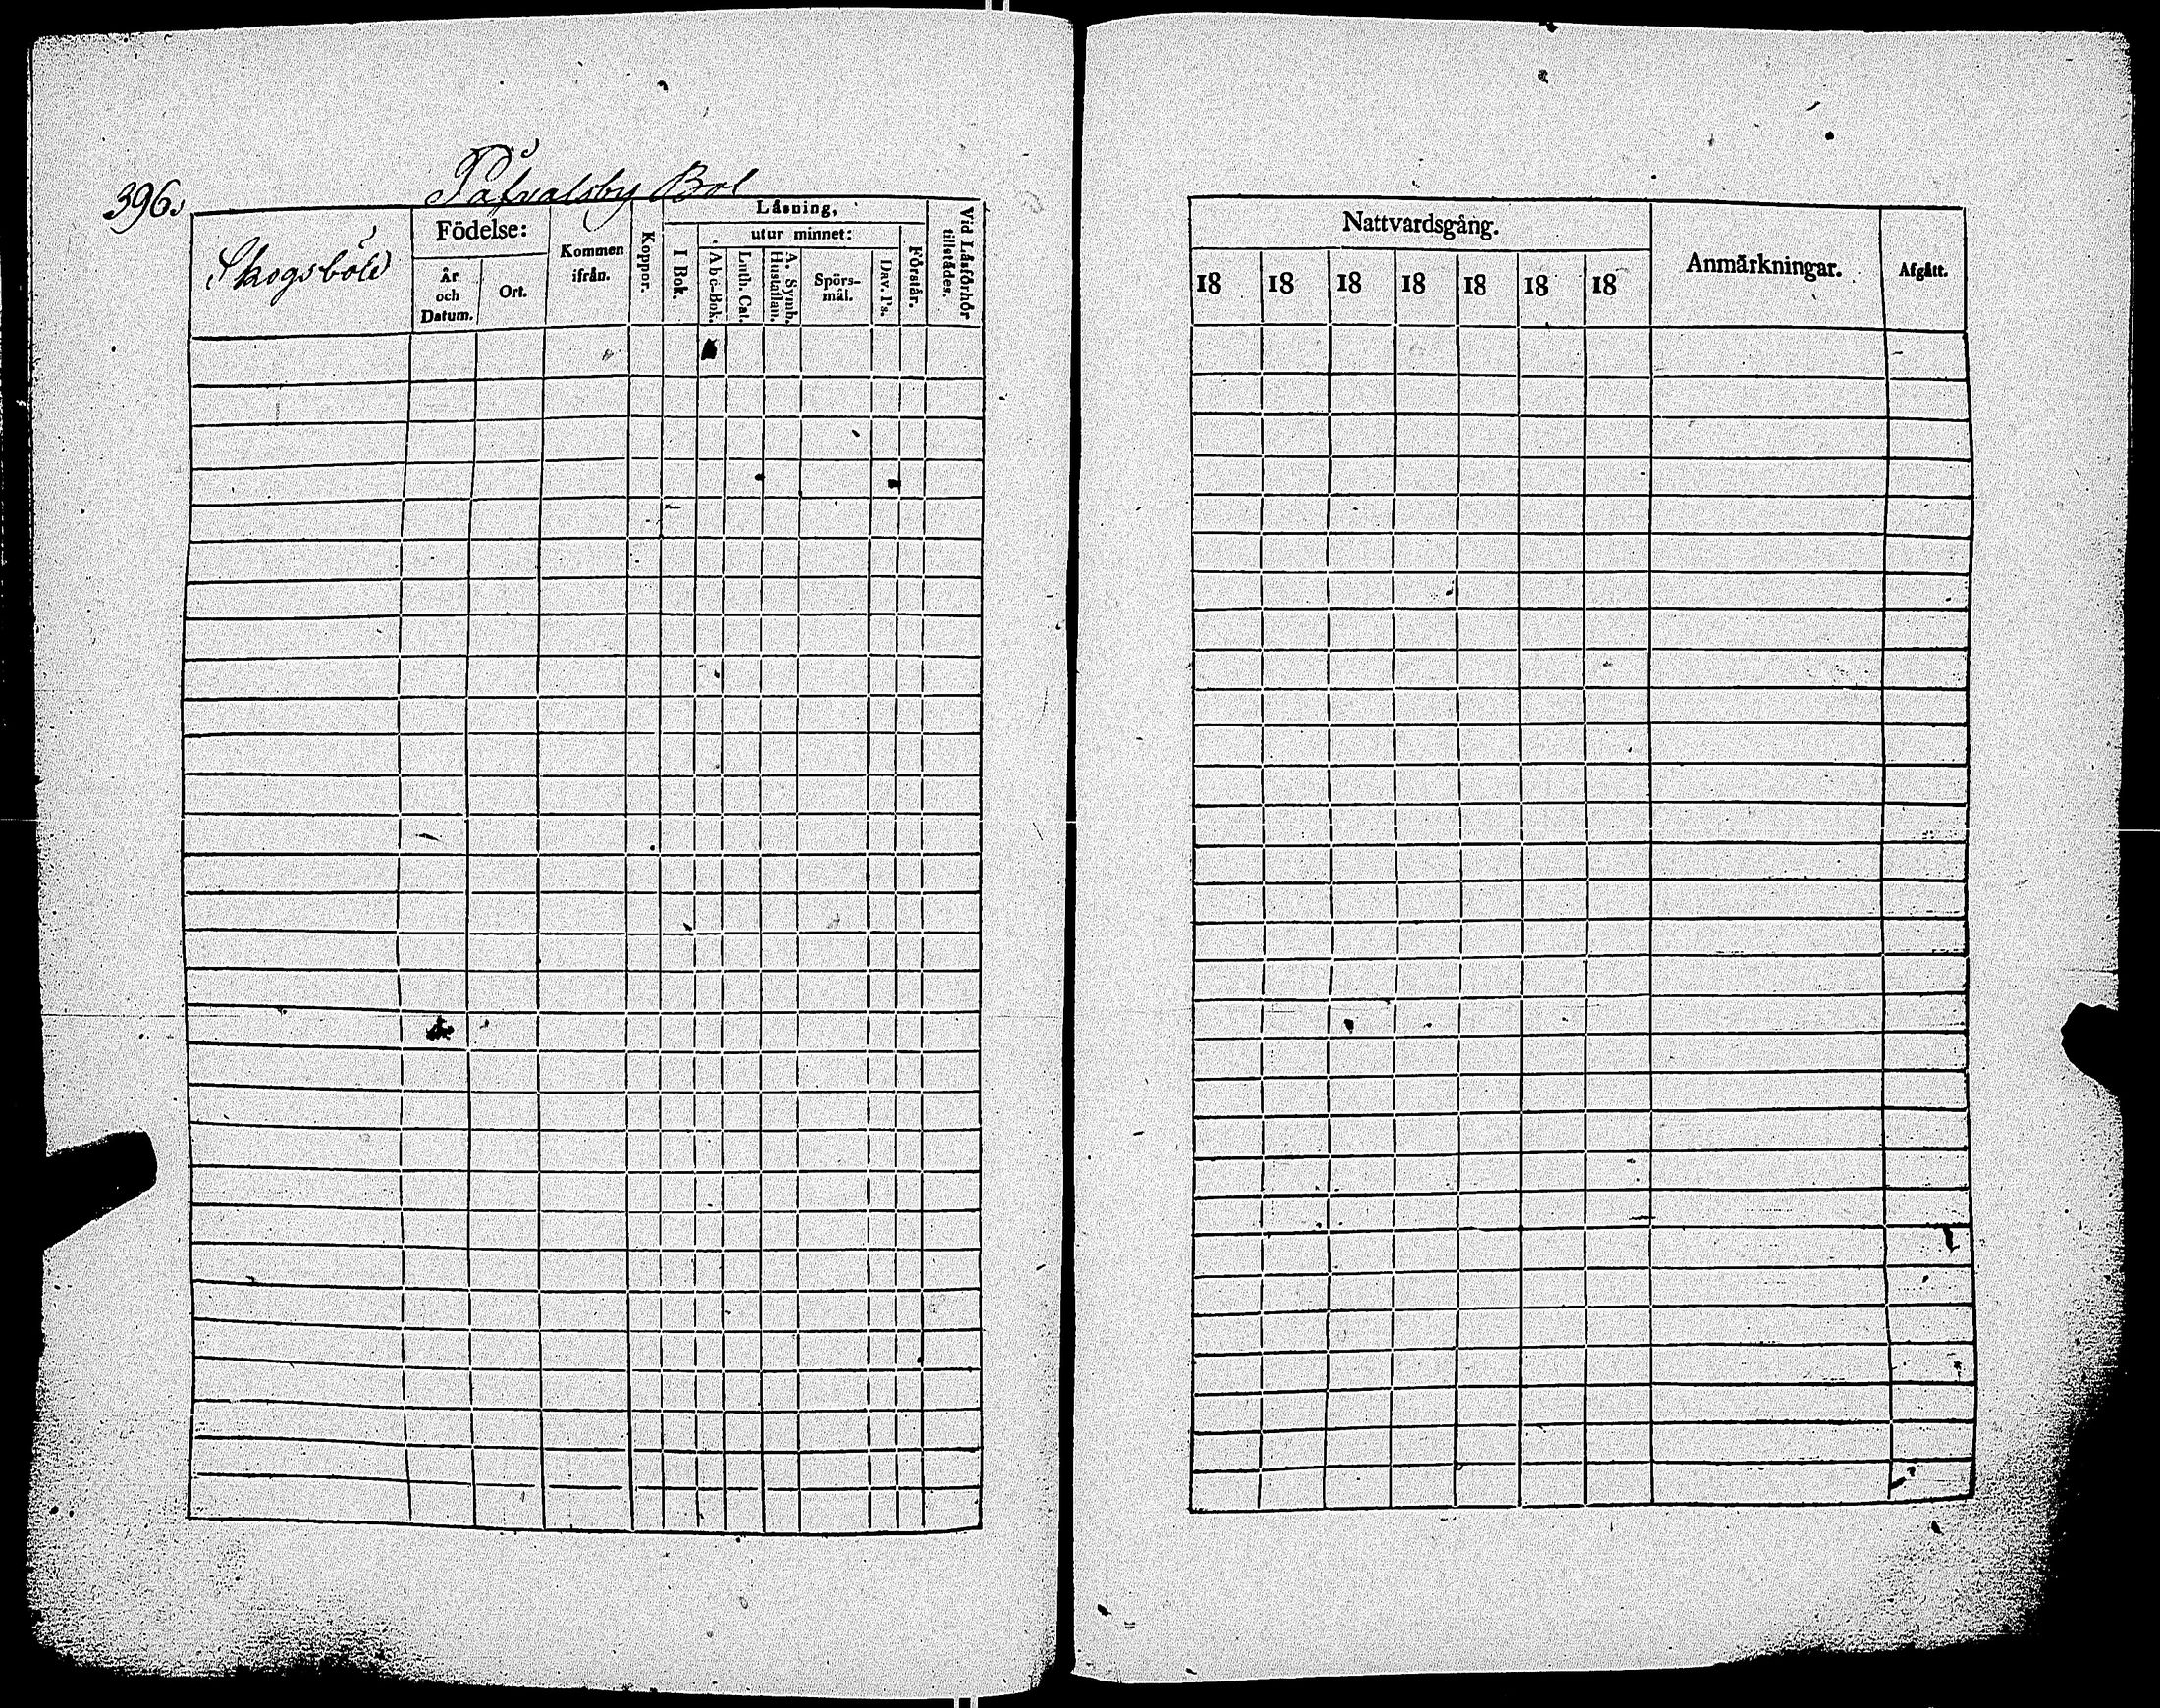 396.
Påfvalsby Bol
Skogsböle
Födelse:
År och Datum.
Ort.
Kommen ifrån.
Koppor.
Läsning,
I Bok.
utur minnet:
Abc-Bok.
Luth. Cat.
A. Symb. Hustaflan.
Spörs-mål.
Dav. Ps.
Förstår.
Vid Läsförhör tillstädes.
Nattvardsgång.
18 18 18 18 18 18 18
Anmärkningar.
Afgått.